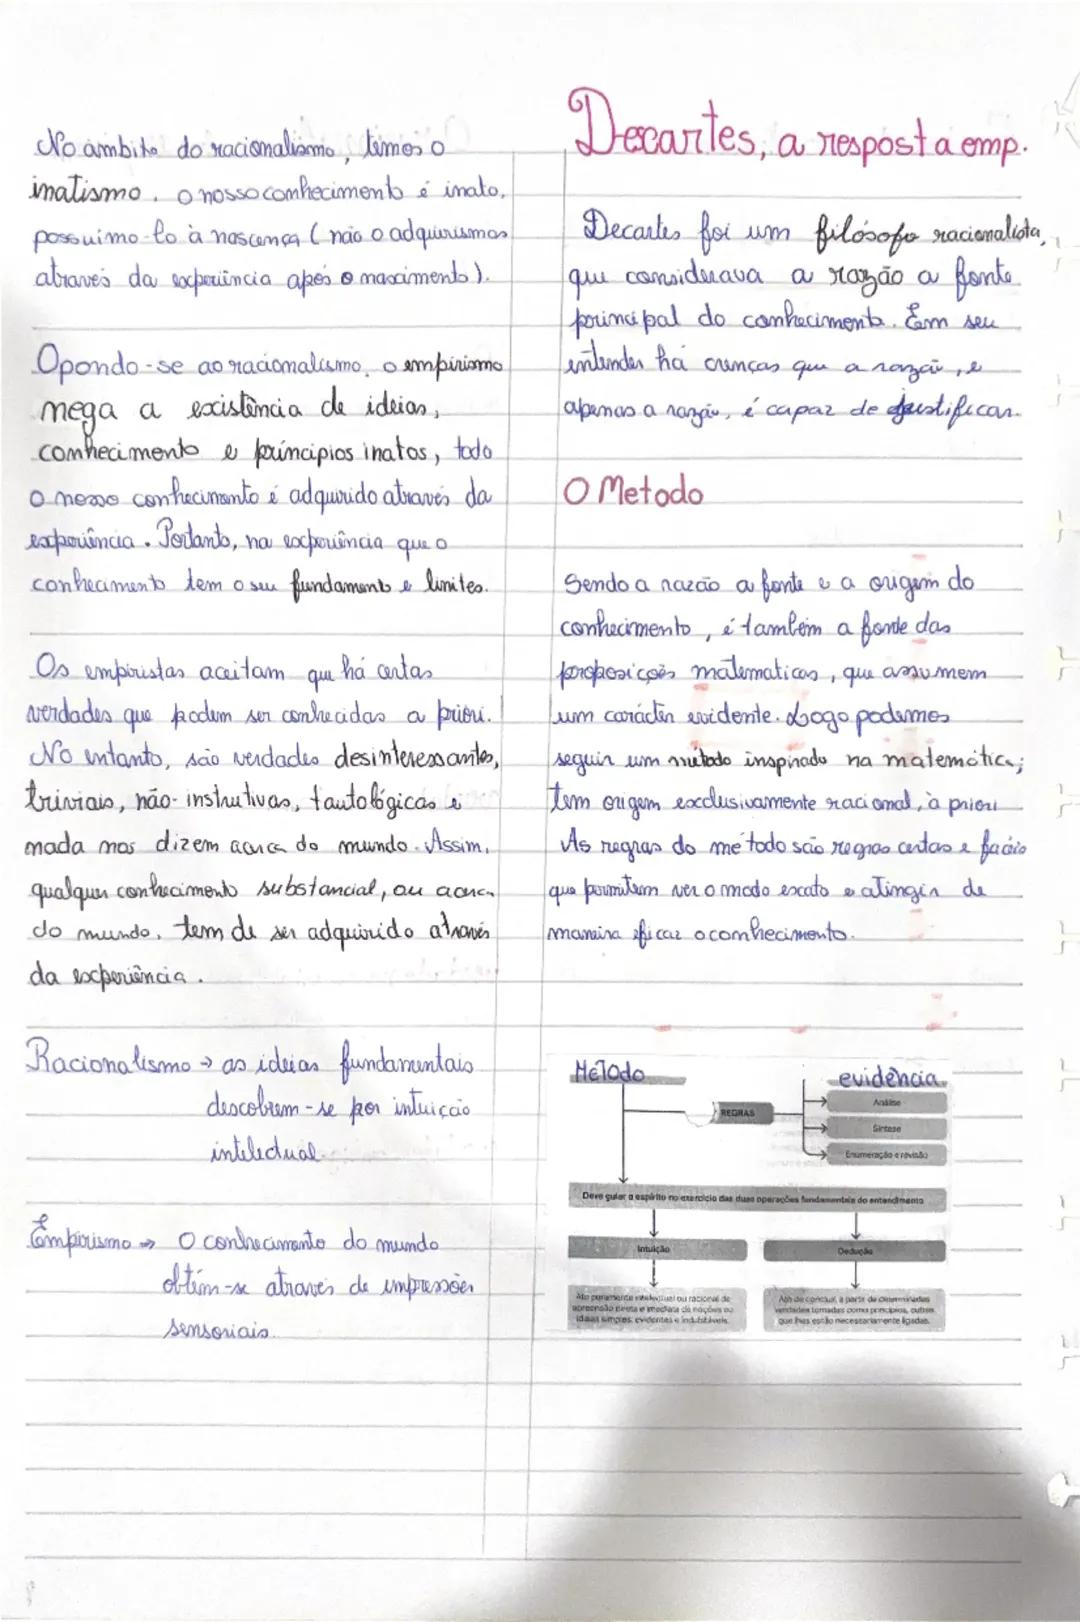 No âmbito do racionalismo, temos o
inatismo. o nosso conhecimento é inato,
possuimo-lo à nascença (não o adquirismos
através da experiência após o nascimento).
Opondo-se ao racionalismo, o empirismo
nega a existência de ideias,
conhecimento e príncipios inatos, todo
o nosso conhecimento é adquirido através da
experiência. Portanto, na experiência que o
conhecimento tem o seu fundamento e limites.
Os empiristas aceitam que há certas
verdades que podem ser conhecidas a priori.
No entanto, são verdades desinteressantes,
triviais, não-instrutivas, tautológicas e
nada nos dizem acerca do mundo. Assim,
qualquer conhecimento substancial, ou acerca
do mundo, tem de ser adquirido através
da experiência.
Racionalismo → as ideias fundamentais
descobrem-se por intuição
intelectual.
Empirismo → O conhecimento do mundo
obtém-se através de impressões
sensoriais.
Descartes, a resposta emp.
Decartes foi um filósofo racionalista,
que considerava a razão a fonte
principal do conhecimento. Em seu
entender há crenças que a razão, e
apenas a razão, é capaz de justificar.
O Metodo
Sendo a razão a fonte e a origem do
conhecimento, é também a fonte das
proposições matematicas, que assumem
um carácter evidente. Logo podemos
seguir um método inspirado na matemática;
tem origem exclusivamente racional, à priori
As regras do método são regras certas e fáceis
que permitem ver o modo exato e atingir de
maneira eficaz o conhecimento.
Método
evidência
REGRAS
Análise
Síntese
Enumeração e revisão
Deve guiar o espírito no exercício das duas operações fundamentais do entendimento
Intuição
Dedução
Ato puramente intelectual ou racional de
apreensão direta e imediata de noções ou
ideias simples, evidentes e indubitáveis.
Ato de concluir, a partir de determinadas
verdades tomadas como princípios, outras
que lhes estão necessariamente ligadas.